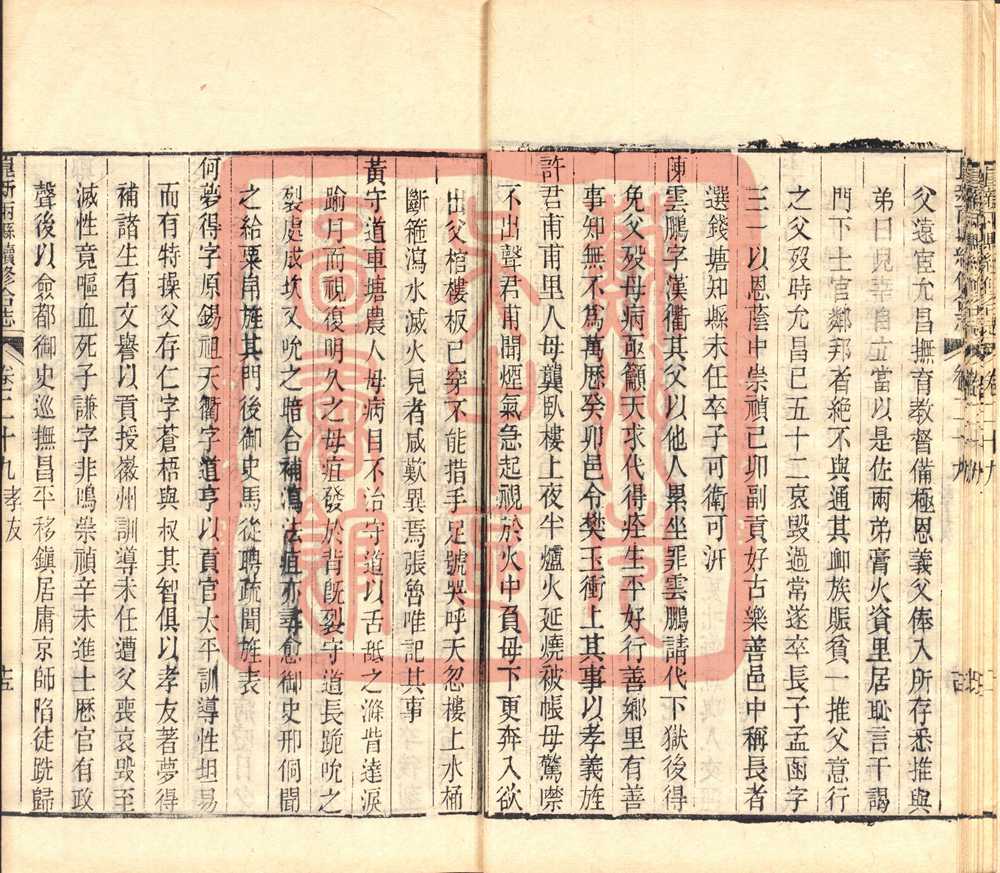 父遠宦允昌撫育教督備極恩義父俸入所存悉推與
弟曰兄幸自立當以是佐兩弟膏火資里居恥言干謁
門下士官鄰邦者絕不與通其卹族賑貧一推父意行
之父歿時允昌已五十二哀毀過常遂卒長子孟函字
三一以恩蔭中崇禎己卯副貢好古樂善邑中稱長者
選錢塘知縣未任卒子可衛可汧
陳雲鵬字漢衢其父以他人累坐罪雲鵬請代下獄後得
免父歿母病亟籲天求代得痊生平好行善鄉里有善
事知無不為萬歷癸卯邑令樊玉衝上其事以孝義旌
許君甫甫里人母龔臥樓上夜半爐火延燒被帳母驚禜
不出聲君甫聞煙氣急起視於火中負母下更奔入欲
出父棺樓板已穿不能措手足號哭呼天忽樓上水桶
斷箍瀉水滅火見者咸歎異焉張魯唯記其事
黃守道車塘農人母病目不治守道以舌砥之滌眥達淚
踰月而視復明久之母疽發於背旣裂守道長跪吮之
裂處成坎又吮之暗合補瀉法疽亦尋愈御史邢侗聞
之給粟帛旌其門後御史馬從聘疏聞旌表
何夢得字原錫祖天衢字道亨以貢官太平訓導性坦易
而有特操父存仁字蒼梧與叔其智俱以孝友著夢得
補諸生有文譽以貢授徽州訓導未任遭父喪哀毀至
滅性竟嘔血死子謙字非鳴崇禎辛未進士歷官有政
聲後以僉都御史巡撫昌平移鎮居庸京師陷徒跣歸
崑新兩縣續修合志
卷二十九 孝友